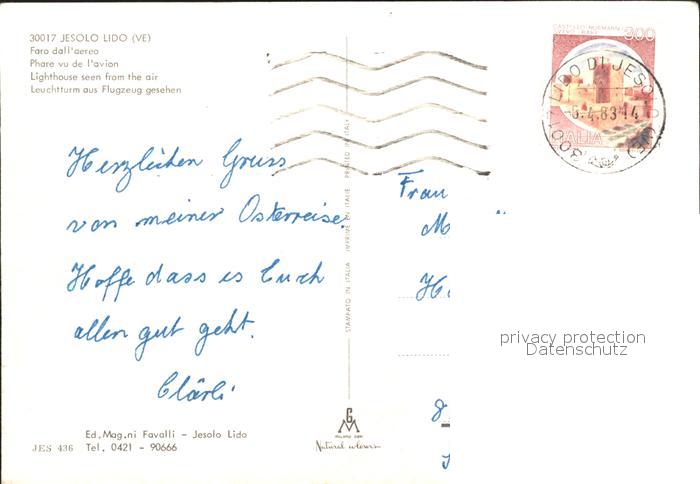 30017 JESOLO LIDO (VE)
Faro dall'aereo
Phare vu de l'avion
Lighthouse seen from the air
Leuchtturm aus Flugzeug gesehen
Herzlichen Gruss
von meiner Osterreise.
Hoffe dass es Euch
allen gut geht.
Clärli
Ed. Mag.ni Favalli - Jesolo Lido
JES 436 Tel. 0421 - 90666
STAMPATO IN ITALIA IMPRIME EN ITALIE PRINTED IN ITALY
GM
MILANO
Natural colours
CASTELLO NORMANNO
SVEVO - BARI
300
ITALIA
LIDO DI JESOLO (VE)
-5.4.83-14
30017
Frau
M
H
8
privacy protection
Datenschutz